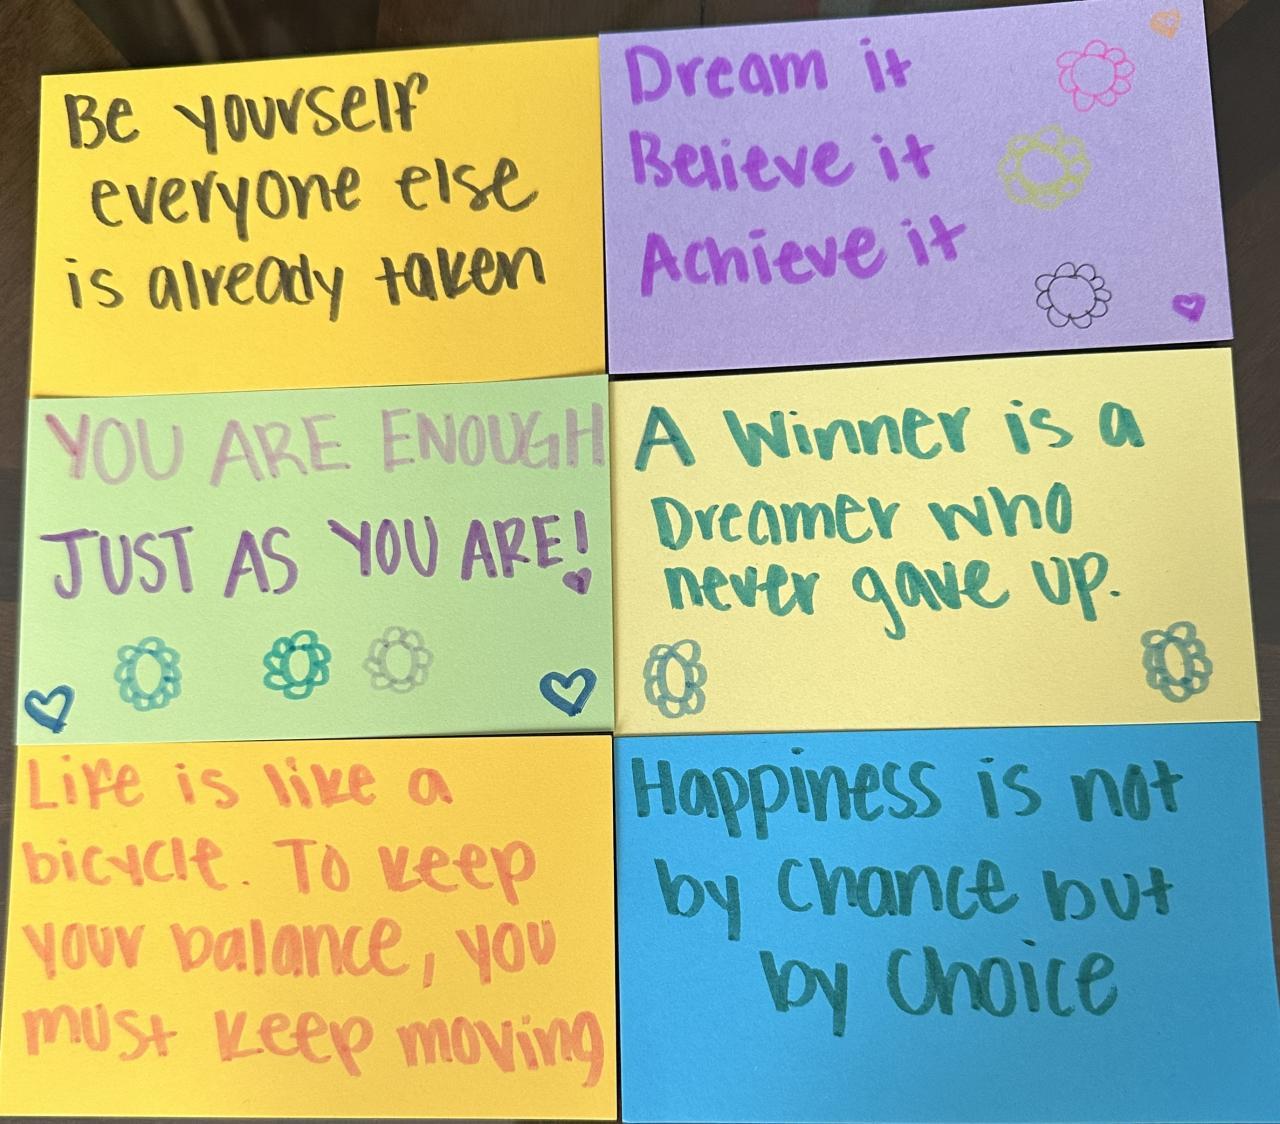 Be yourself
everyone else
is already taken
Dream it
Believe it
Achieve it
YOU ARE ENOUGH
JUST AS YOU ARE!
A Winner is a
Dreamer who
never gave up.
Life is like a
bicycle. To keep
your balance, you
must keep moving
Happiness is not
by Chance but
by Choice